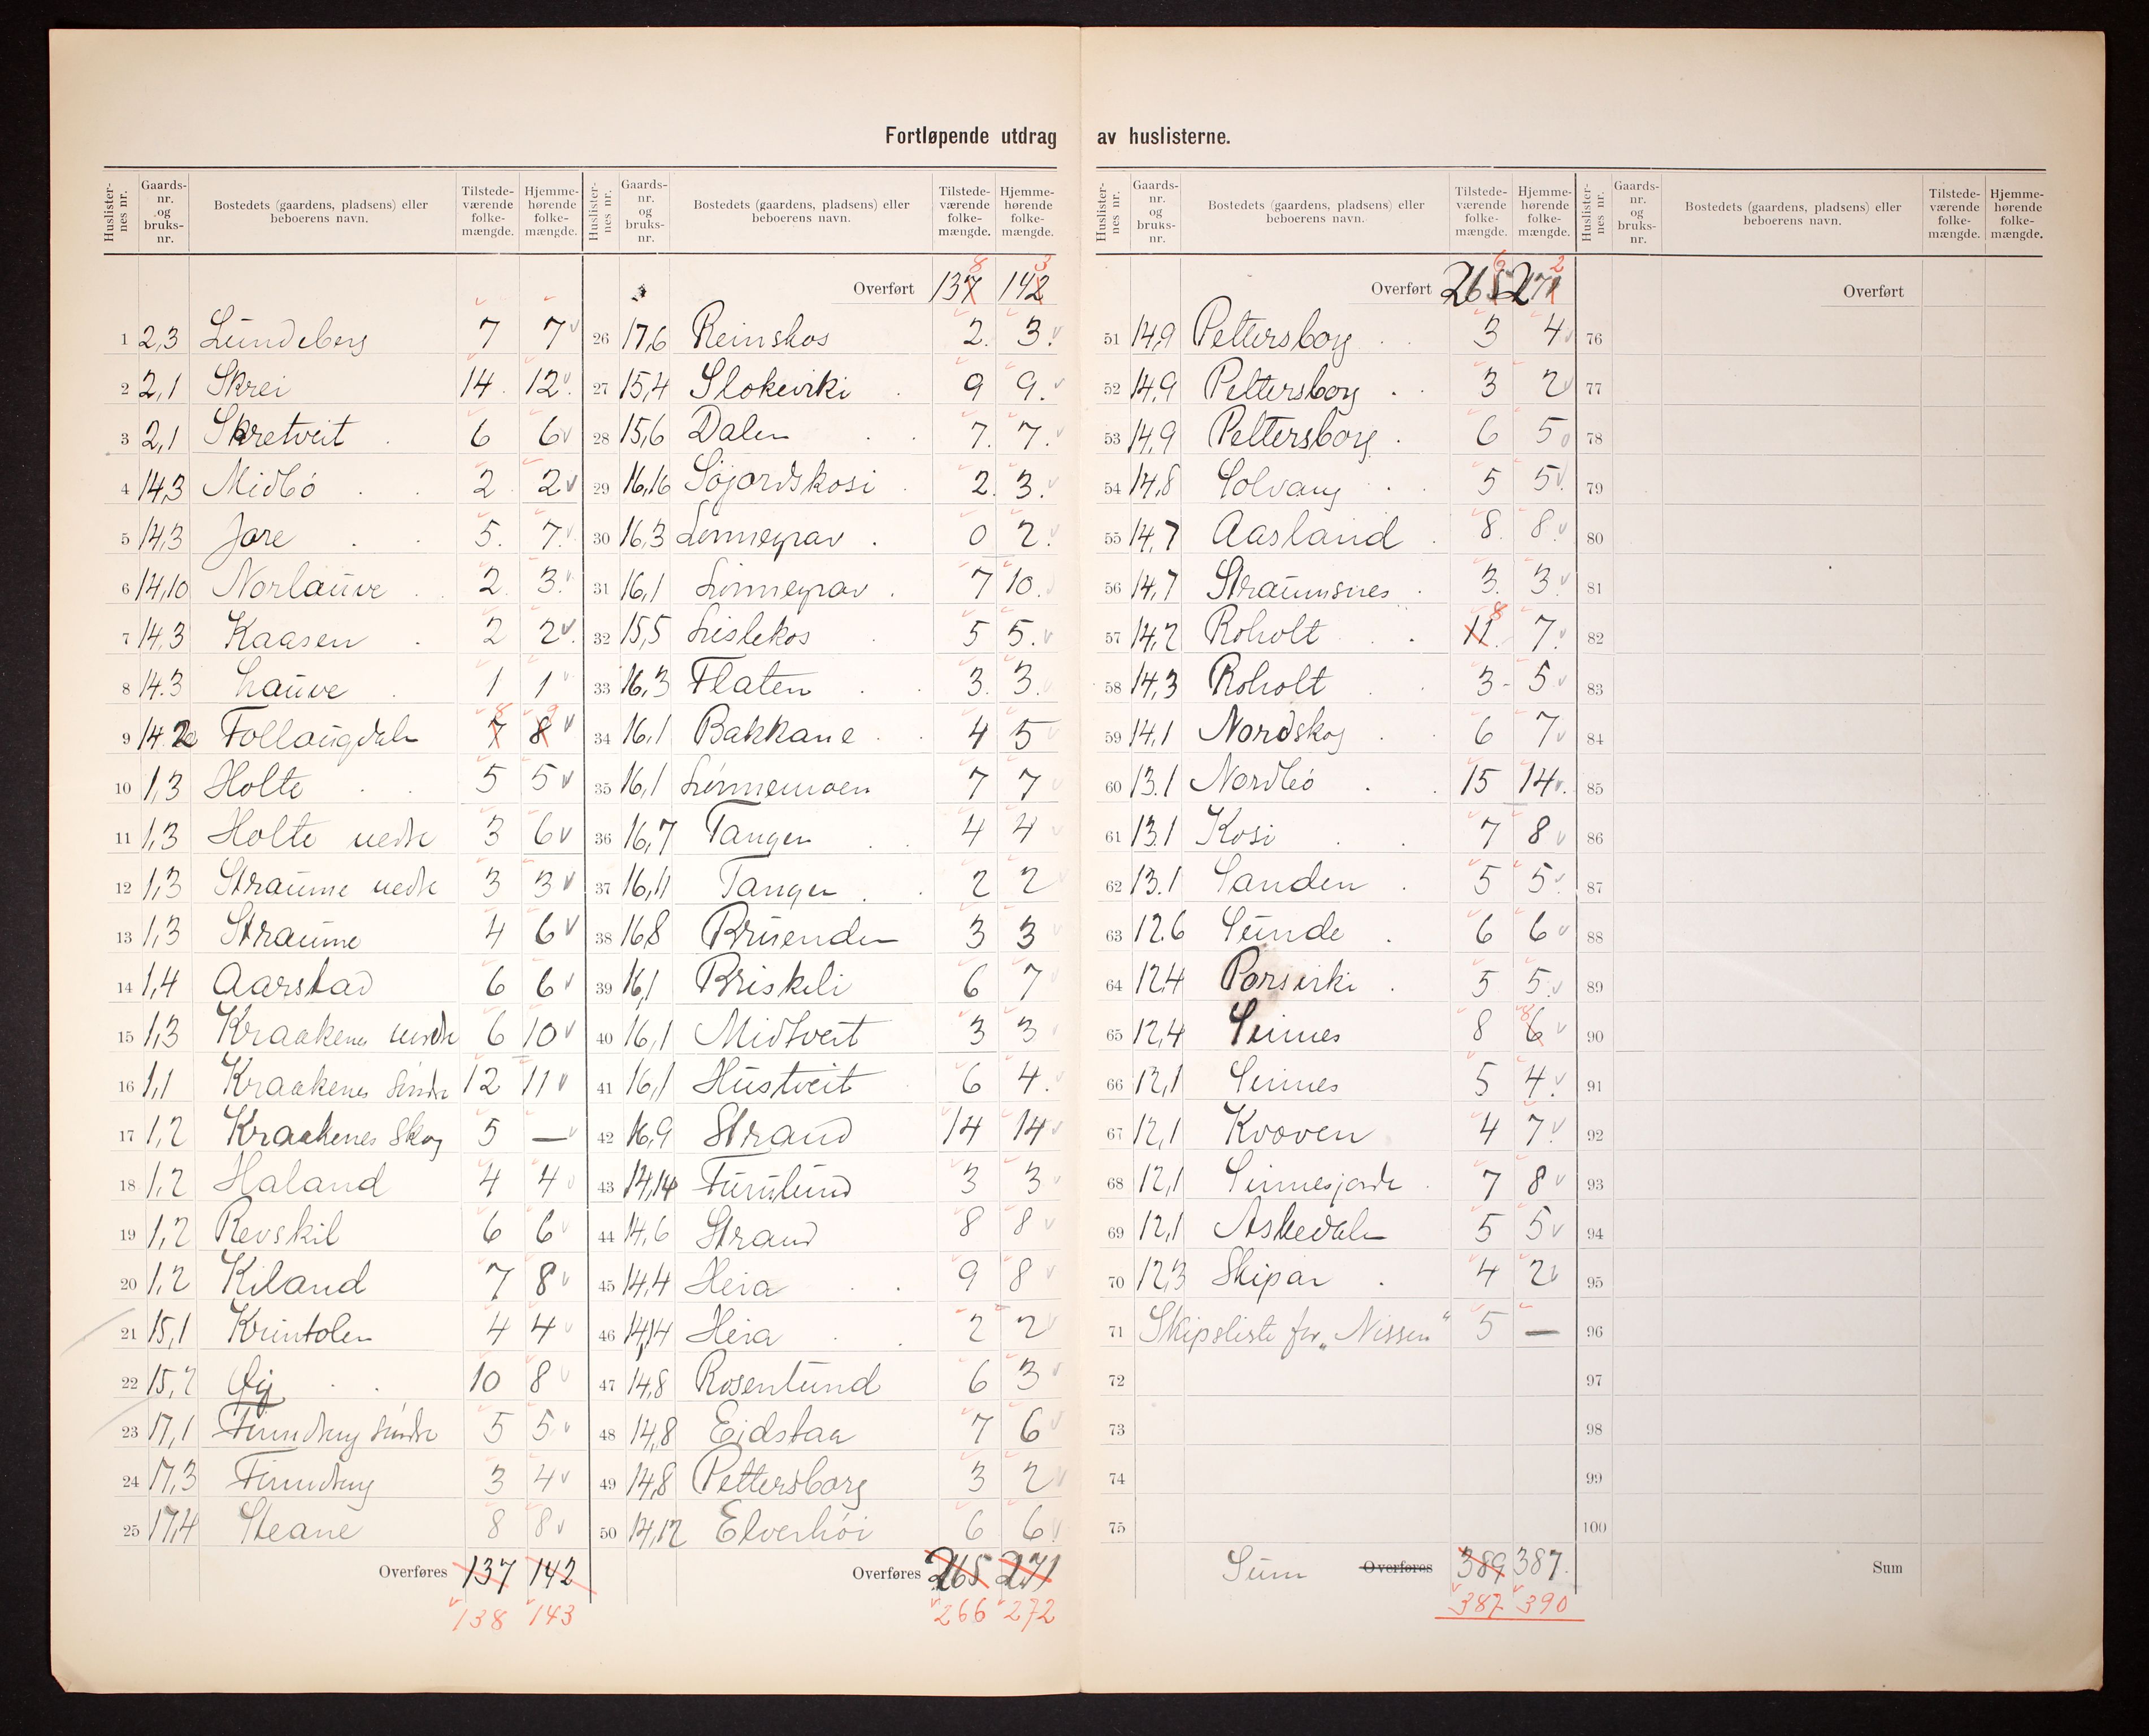 Fortløpende utdrag av huslisterne.
Huslisternes nr. Gaards-nr. og bruks-nr. Bostedets (gaardens, pladsens) eller beboerens navn. Tilstede-værende folke-mængde. Hjemme-hørende folke-mængde.
1 2,3 Lundeberg 7 7
2 2,1 Skrei 14 12
3 2,1 Skretveit 6 6
4 14,3 Midbö 2 2
5 14,3 Jore 5 7
6 14,10 Norlauve 2 3
7 14,3 Kaasen 2 2
8 14.3 Lauve 1 1
9 14.2 Follaugdalen 7 8 8 9
10 1,3 Holte 5 5
11 1,3 Holte nedre 3 6
12 1,3 Straume nedre 3 3
13 1,3 Straume 4 6
14 1,4 Aarstad 6 6
15 1,3 Kraakenes nordre 6 10
16 1,1 Kraakenes söndre 12 11
17 1,2 Kraakenes Skog 5 —
18 1,2 Haland 4 4
19 1,2 Revskil 6 6
20 1,2 Kiland 7 8
21 15,1 Kruntolen 4 4
22 15,2 Øy 10 8
23 17,1 söndre 5 5
24 17,3 3 4
25 17,4 Steane 8 8
Overføres 137 142
138 143
Huslisternes nr. Gaards-nr. og bruks-nr. Bostedets (gaardens, pladsens) eller beboerens navn. Tilstede-værende folke-mængde. Hjemme-hørende folke-mængde.
Overført 137 8 142 3
26 17,6 Reinskos 2 3
27 15,4 Slokvirki 9 9
28 15,6 Dalen 7 7
29 16,16 Söjordskosi 2 3
30 16,3 Lönnegrav 0 2
31 16,1 Lönnegrav 7 10
32 15,5 Lislekos 5 5
33 16,3 Flaten 3 3
34 16,1 Bakkane 4 5
35 16,1 Lönnemoen 7 7
36 16,7 Tangen 4 4
37 16,11 Tangen 2 2
38 16,8 Bruenden 3 3
39 16,1 Briskeli 6 7
40 16,1 Midtveit 3 3
41 16,1 Hustveit 6 4
42 16,9 Strand 14 14
43 14,14 Furulund 3 3
44 14,6 Strand 8 8
45 14,4 Heia 9 8
46 14,14 Heia 2 2
47 14,8 Rosenlund 6 3
48 14,8 Eidstaa 7 6
49 14,8 Pettersborg 3 2
50 14,12 Elverhöi 6 6
Overføres 265 271
266 272
Huslisternes nr. Gaards-nr. og bruks-nr. Bostedets (gaardens, pladsens) eller beboerens navn. Tilstede-værende folke-mængde. Hjemme-hørende folke-mængde.
Overført 265 6 271 2
51 14,9 Pettersborg 3 4
52 14,9 Pettersborg 3 2
53 14,9 Pettersborg 6 5
54 14,8 Solvang 5 5
55 14,7 Aasland 8 8
56 14,7 Straumsnes 3 3
57 14,2 Roholt 11 8 7
58 14,3 Roholt 3 5
59 14,1 Nordskog 6 7
60 13.1 Nordbö 15 14
61 13.1 Kosi 7 8
62 13.1 Sanden 5 5
63 12.6 Sunde 6 6
64 12,4 Porsvirki 5 5
65 12,4 Sinnes 8 6 8
66 12,1 Sinnes 5 4
67 12,1 Kvoven 4 7
68 12,1 Sinnesjorde 7 8
69 12,1 Askedalen 5 5
70 12,3 Skipar 4 2
71 Skipsliste for „Nissen" 5 —
72
73
74
75
Sum Overføres 389 387
387 390
Huslisternes nr. Gaards-nr. og bruks-nr. Bostedets (gaardens, pladsens) eller beboerens navn. Tilstede-værende folke-mængde. Hjemme-hørende folke-mængde.
Overført
76
77
78
79
80
81
82
83
84
85
86
87
88
89
90
91
92
93
94
95
96
97
98
99
100
Sum